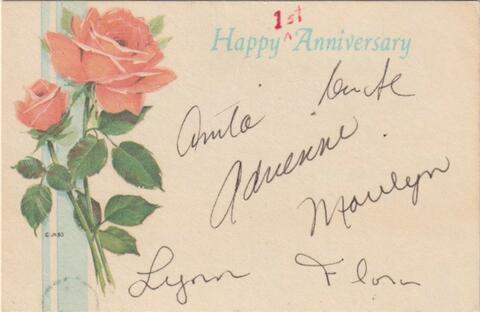 Happy 1st Anniversary
Anita
Adrienne
Marilyn
Lynn Flora